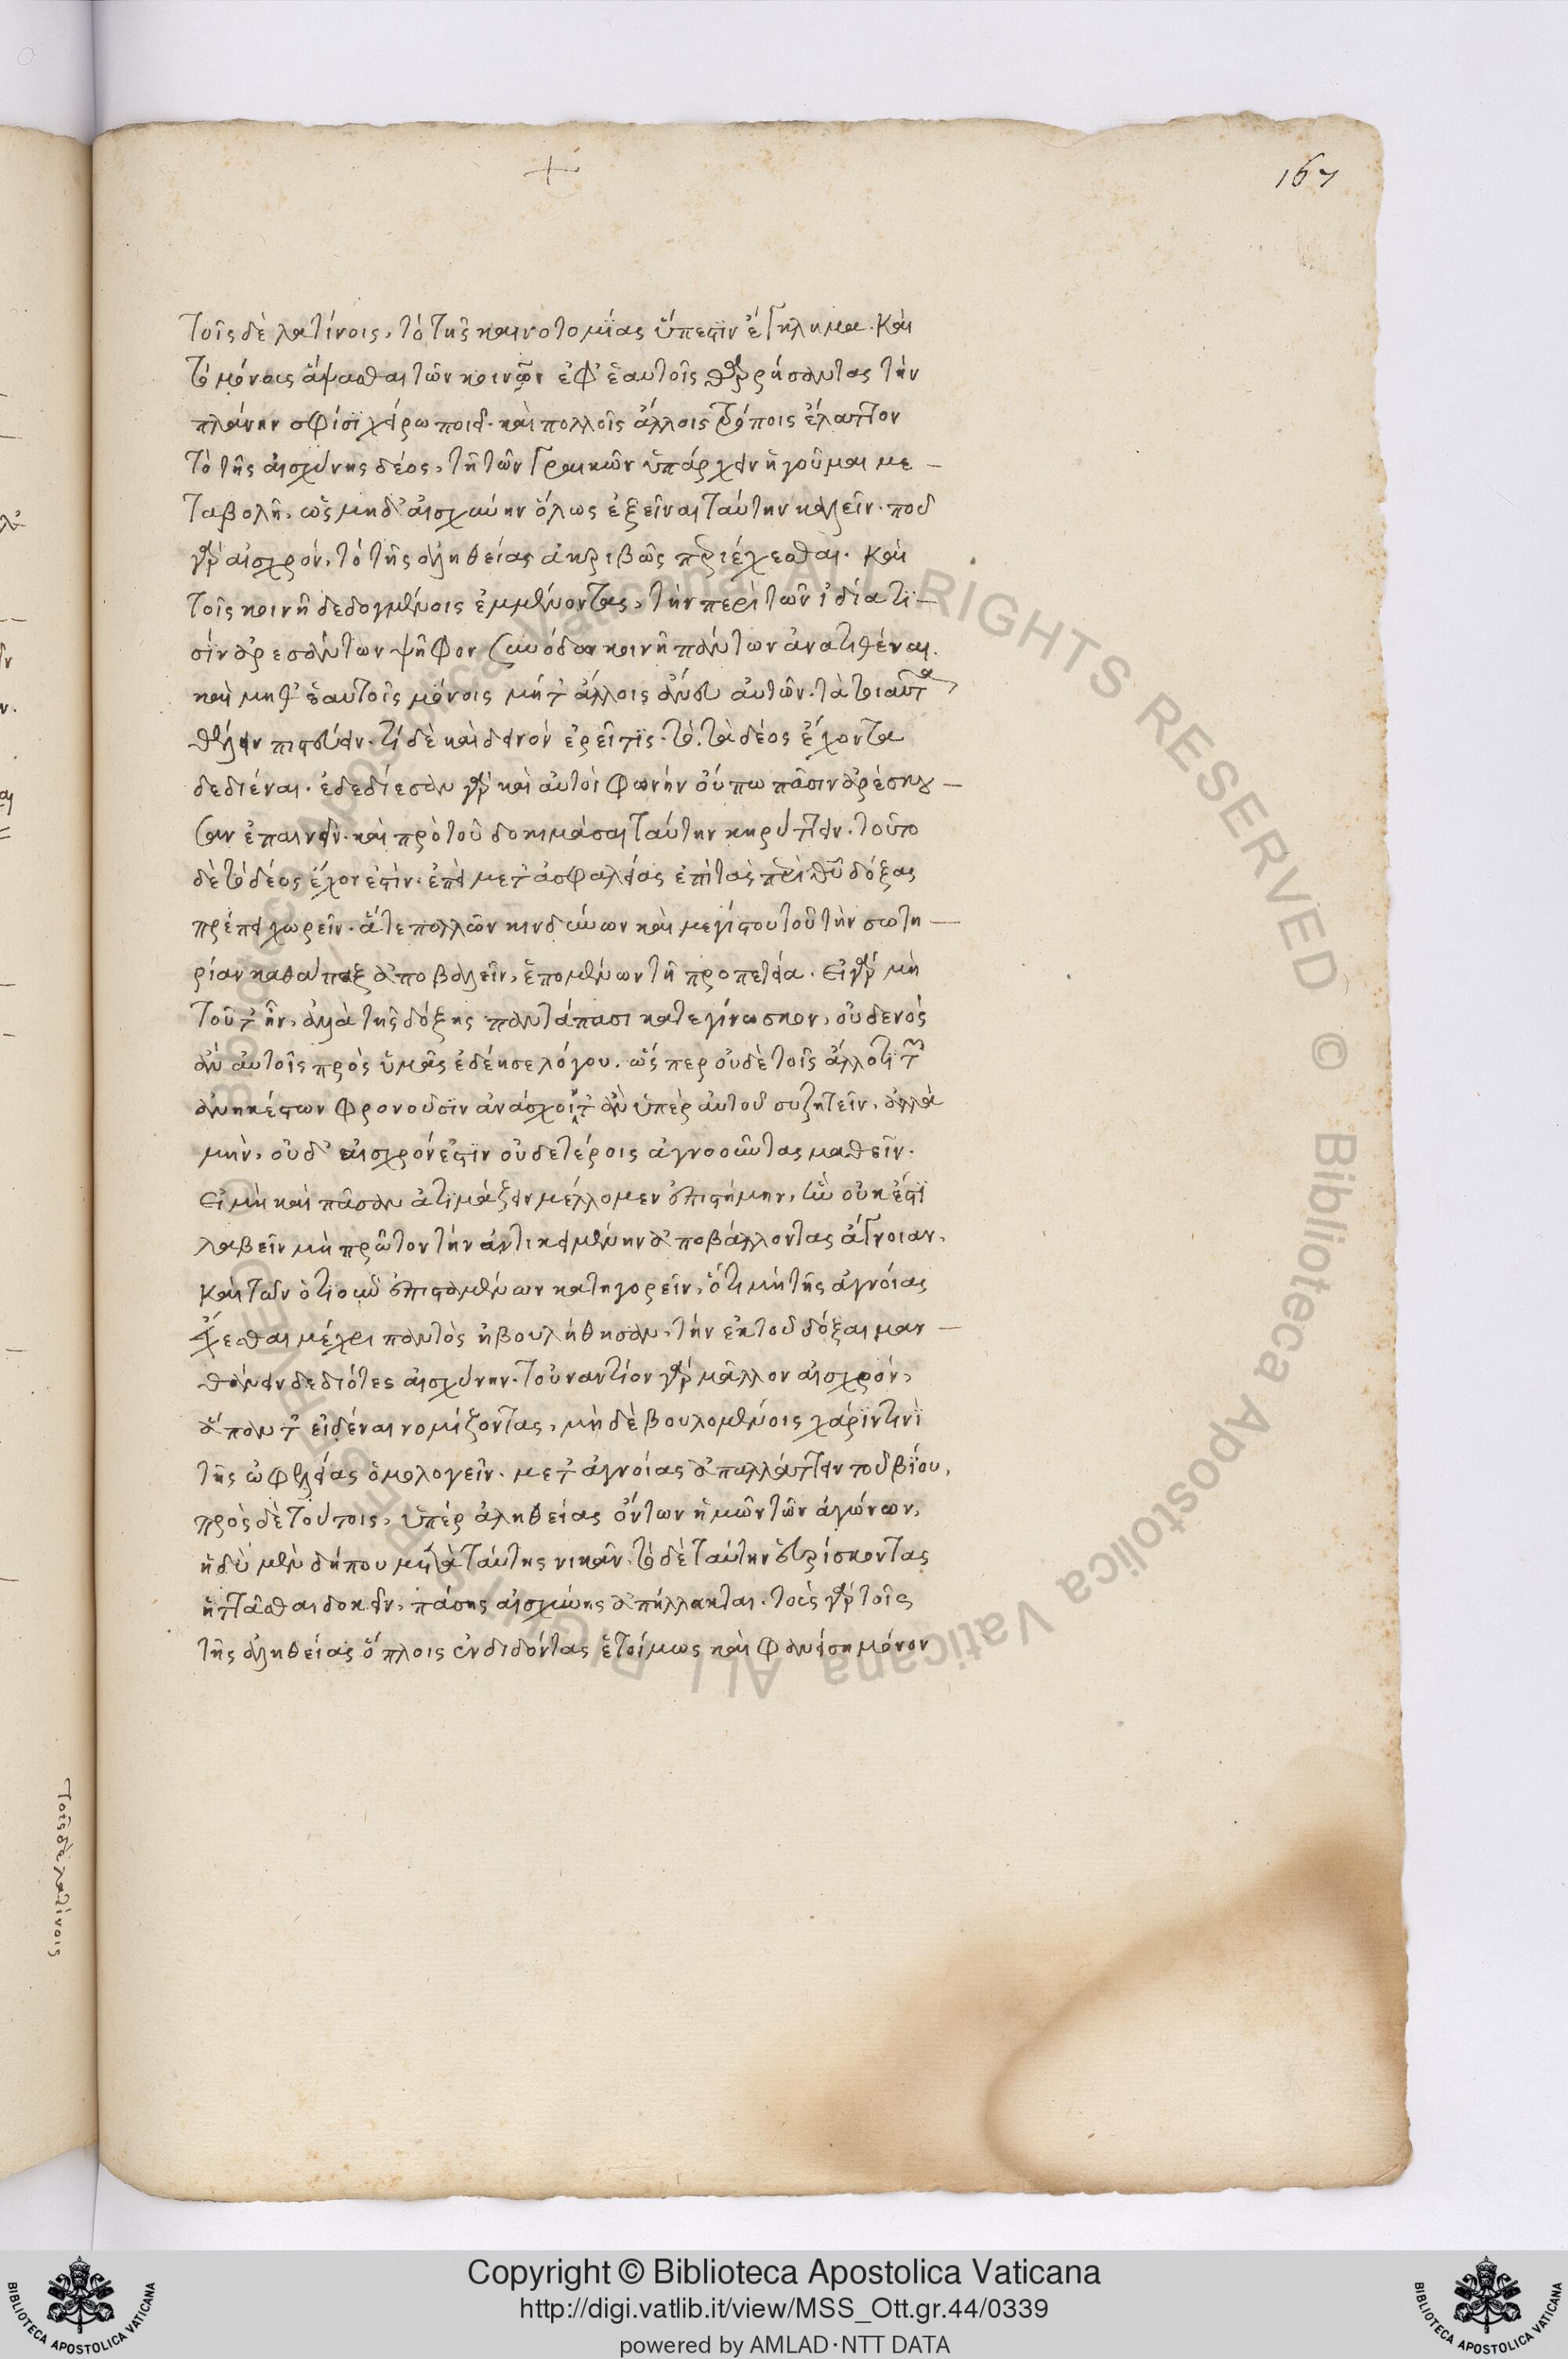 167
τοῖς δὲ λατίνοις, τὸ τῆς καινοτομίας ὕπεστιν ἔγκλημα. καὶ
τὸ μόνοις ἅψασθαι τῶν κοινῶν ἐφ' ἑαυτοῖς θαρρήσαντας τὴν
πλάνην σφίσι χείρω ποιεῖ. καὶ πολλοῖς ἄλλοις τρόποις ἔλαττον
τὸ τῆς αἰσχύνης δέος, τῇ τῶν Γραικῶν ὑπάρχειν ἡγοῦμαι με –
ταβολῇ, ὡς μηδ' αἰσχύνην ὅλως ἐξεῖναι ταύτην καλεῖν. ποῦ
γὰρ αἰσχρόν, τὸ τῆς ἀληθείας ἀκριβῶς περιέχεσθαι. καὶ
τοῖς κοινῇ δεδογμένοις ἐμμένοντας, τὴν περὶ τῶν ἰδίᾳ τι –
σὶν ἀρεσάντων ψῆφον συνόδῳ κοινῇ πάντων ἀνατιθέναι.
καὶ μήθ' ἑαυτοῖς μόνοις μήτ' ἄλλοις ἄνευ αὐτῶν. τὰ τοιαῦτα
θέλειν πιστεύειν. τί δὲ καὶ δεινὸν ἐρεῖ τις. τὸ, τὰ δέος ἔχοντα
δεδιέναι. ἐδεδίεσαν γὰρ καὶ αὐτοὶ φωνὴν οὔπω πᾶσιν ἀρέσκου –
σαν ἐπαινεῖν. καὶ πρὸ τοῦ δοκιμάσαι ταύτην κηρύττειν. τοῦτο
δὲ τὸ δέος ἔχον ἐστίν. ἐπεὶ μετ' ἀσφαλείας ἐπὶ τὰς περὶ θεοῦ δόξας
πρέπει χωρεῖν. ἅτε πολλῶν κινδύνων καὶ μεγίστου τοῦ τὴν σωτη –
ρίαν καθάπαξ ἀποβαλεῖν, ἑπομένων τῇ προπετείᾳ. εἰ γὰρ μὴ
τοῦτ' ἦν, ἀλλὰ τῆς δόξης παντάπασι κατεγίνωσκον, οὐδενὸς
ἂν αὐτοῖς πρὸς ὑμᾶς ἐδέησε λόγου. ὥσπερ οὐδὲ τοῖς ἄλλο τι τῶν
ἀνηκέστων φρονοῦσιν ἀνάσχοιντ' ἂν ὑπὲρ αὐτοῦ συζητεῖν. ἀλλὰ
μὴν, οὐδ' αἰσχρόν ἐστιν οὐδετέροις ἀγνοοῦντας μαθεῖν.
εἰ μὴ καὶ πᾶσαν ἀτιμάζειν μέλλομεν ἐπιστήμην, ἣν οὐκ ἔστι
λαβεῖν μὴ πρῶτον τὴν ἀντικειμένην ἀποβάλλοντας ἄγνοιαν.
καὶ τῶν ὁτιοῦν ἐπισταμένων κατηγορεῖν, ὅτι μὴ τῆς ἀγνοίας
ἔχεσθαι μέχρι παντὸς ἠβουλήθησαν, τὴν ἐκ τοῦ δόξαι μαν –
θάνειν δεδιότες αἰσχύνην. τοὐναντίον γὰρ μᾶλλον αἰσχρόν,
ἅπαντ' εἰδέναι νομίζοντας, μὴ δὲ βουλομένοις χάριν τινὶ
τῆς ὠφελείας ὁμολογεῖν. μετ' ἀγνοίας ἀπαλλάττειν τοῦ βίου,
πρὸς δὲ τούτοις, ὑπὲρ ἀληθείας ὄντων ἡμῶν τῶν ἀγώνων,
ἡδὺ μὲν δήπου μετὰ ταύτης νικᾶν. τὸ δὲ ταύτην εὑρίσκοντας
ἡττᾶσθαι δοκεῖν, πάσης αἰσχύνης ἀπήλλακται. τοὺς γὰρ τοῖς
τῆς ἀληθείας ὅπλοις ἐνδιδόντας ἑτοίμως καὶ φανείσῃ μόνον
τοῖς δὲ λατίνοις
Copyright © Biblioteca Apostolica Vaticana
http://digi.vatlib.it/view/MSS_Ott.gr.44/0339
powered by AMLAD·NTT DATA